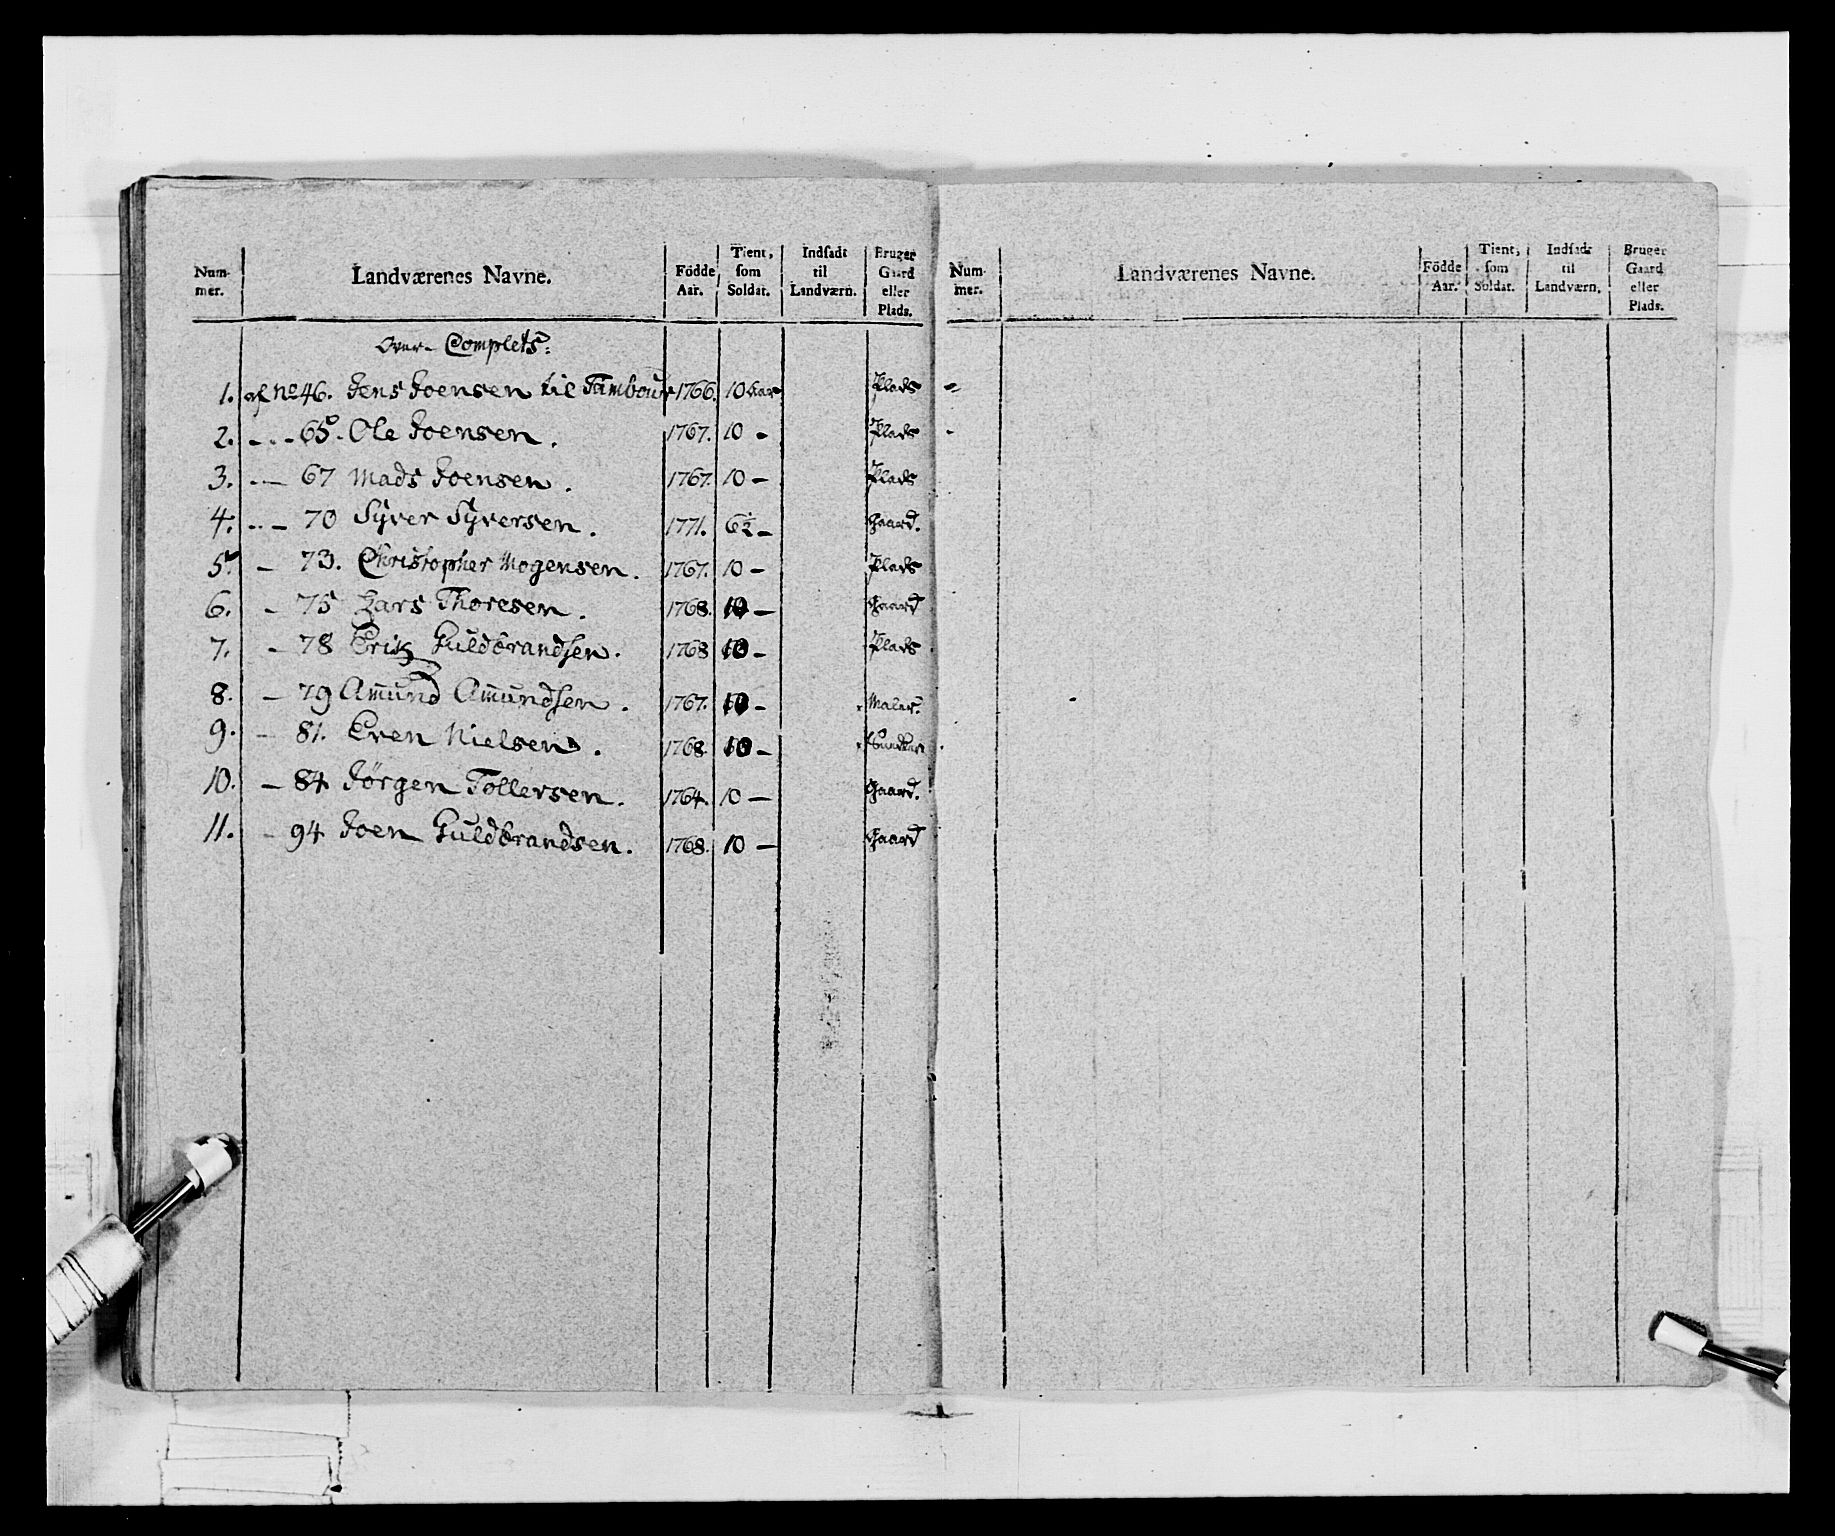 Num-mer. Landværenes Navne. Födde Aar. Tient, som Soldat. Indsadt til Landværn. Bruger Gaard eller Plads.
Over-Complets:
1. af No 46. Jens Joensen til Tambour 1766. 10 Aar Plads
2. - - - 65. Ole Joensen. 1767. 10 - Plads
3. - - 67 Mads Joensen. 1767. 10 - Plads
4. - - 70 Syver Syversen. 1771. 6½ - Gaard.
5. - 73. Christopher Mogensen. 1767. 10 - Plads
6. - 75 Lars Thoresen. 1768. 10 - Gaard
7. - 78 Erik Guldbrandsen. 1768 10 - Plads
8. - 79 Amund Amundsen. 1767. 10 - Maler.
9. - 81. Even Nielsen. 1768. 10 -
10. - 84 Jörgen Tollersen. 1764. 10 - Gaard.
11. - 94 Joen Guldbrandsen. 1768. 10 - Gaard
Num-mer. Landværenes Navne. Födde Aar. Tient, som Soldat. Indsadt til Landværn. Bruger Gaard eller Plads.